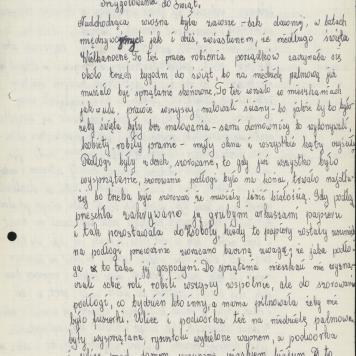 Przygotowania do Świąt.
Nadchodząca wiosna była zawsze - tak dawniej, w latach
międzywojennych jak i dziś, zwiastunem, że niedługo święta
Wielkanocne. To też praca robienia porządków zaczynała się
około trzech tygodni do świąt, bo na niedzielę palmową już
musiało być sprzątanie skończone. To też wrzało w mieszkaniach
jak w ulu, prawie wszyscy malowali ściany - bo jakże by to było
żeby święta były bez malowania - sami domownicy to wykonywali,
kobiety robiły pranie - myły okna i wszystkie kąty
Podłogi były z desek, szorowane, to gdy już wszystko było
wysprzątanie, szorowanie podłogi było na końcu, trwało najdłu-
żej bo trzeba było szorować że musiały lśnić białością. Gdy podłoga
przeschła zakrywano ją grubym arkuszami papieru
i tak pozostawała do Soboty, kiedy to papiery zostały
na podłogi przeważnie zwracano baczną uwagę, że jaka podło-
ga to taka jej gospodyni. Do sprzątania mieszkań nie wyzna-
czali sobie roli robili wszyscy wspólnie, ale do szorowania
podłogi, co tydzień kto inny, a mama pilnowała żeby nie
było usterki. Ulice i podwórka też na niedzielę palmową
były wysprzątane, rynsztoki wybielone wapnem, a podwórka
ulice przed domem piaskiem białym. I to